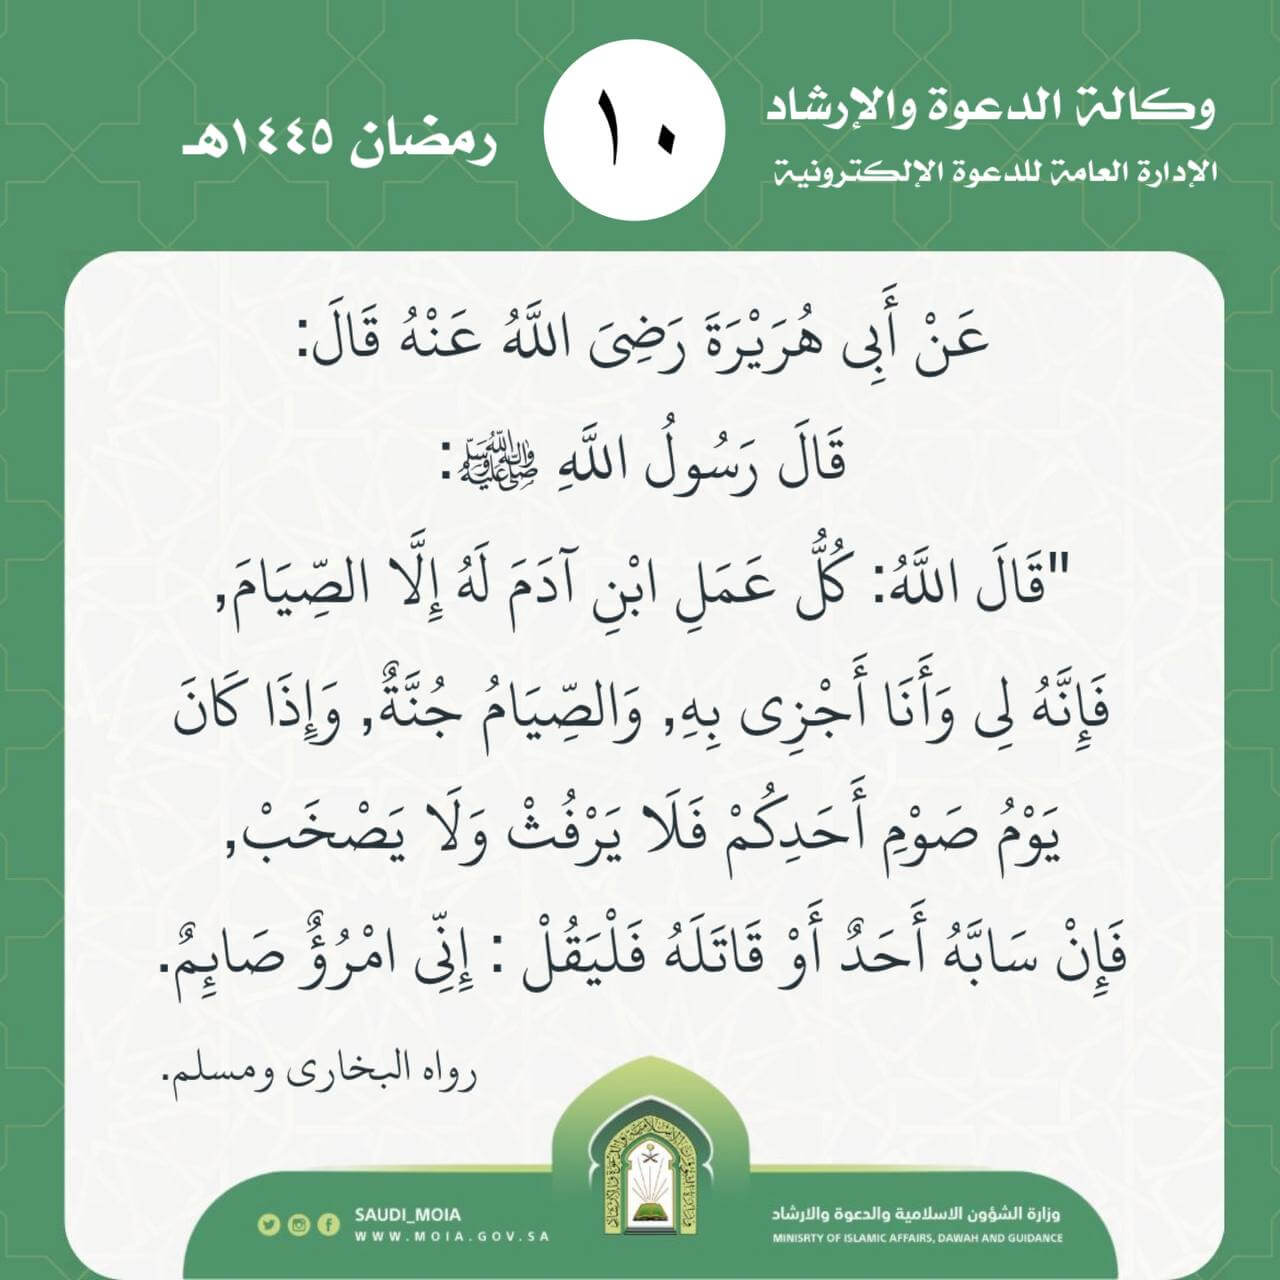 وكالة الدعوة والإرشاد
الإدارة العامة للدعوة الإلكترونية
١٠
رمضان ١٤٤٥هـ
عَنْ أَبِى هُرَيْرَةَ رَضِىَ اللَّهُ عَنْهُ قَالَ:
قَالَ رَسُولُ اللَّهِ ﷺ:
"قَالَ اللَّهُ: كُلُّ عَمَلِ ابْنِ آدَمَ لَهُ إِلَّا الصِّيَامَ,
فَإِنَّهُ لِى وَأَنَا أَجْزِى بِهِ, وَالصِّيَامُ جُنَّةٌ, وَإِذَا كَانَ
يَوْمُ صَوْمِ أَحَدِكُمْ فَلَا يَرْفُثْ وَلَا يَصْخَبْ,
فَإِنْ سَابَّهُ أَحَدٌ أَوْ قَاتَلَهُ فَلْيَقُلْ : إِنِّى امْرُؤٌ صَايِمٌ.
رواه البخارى ومسلم.
وزارة الشؤون الاسلامية والدعوة والارشاد
MINISRTY OF ISLAMIC AFFAIRS, DAWAH AND GUIDANCE
SAUDI_MOIA
WWW.MOIA.GOV.SA